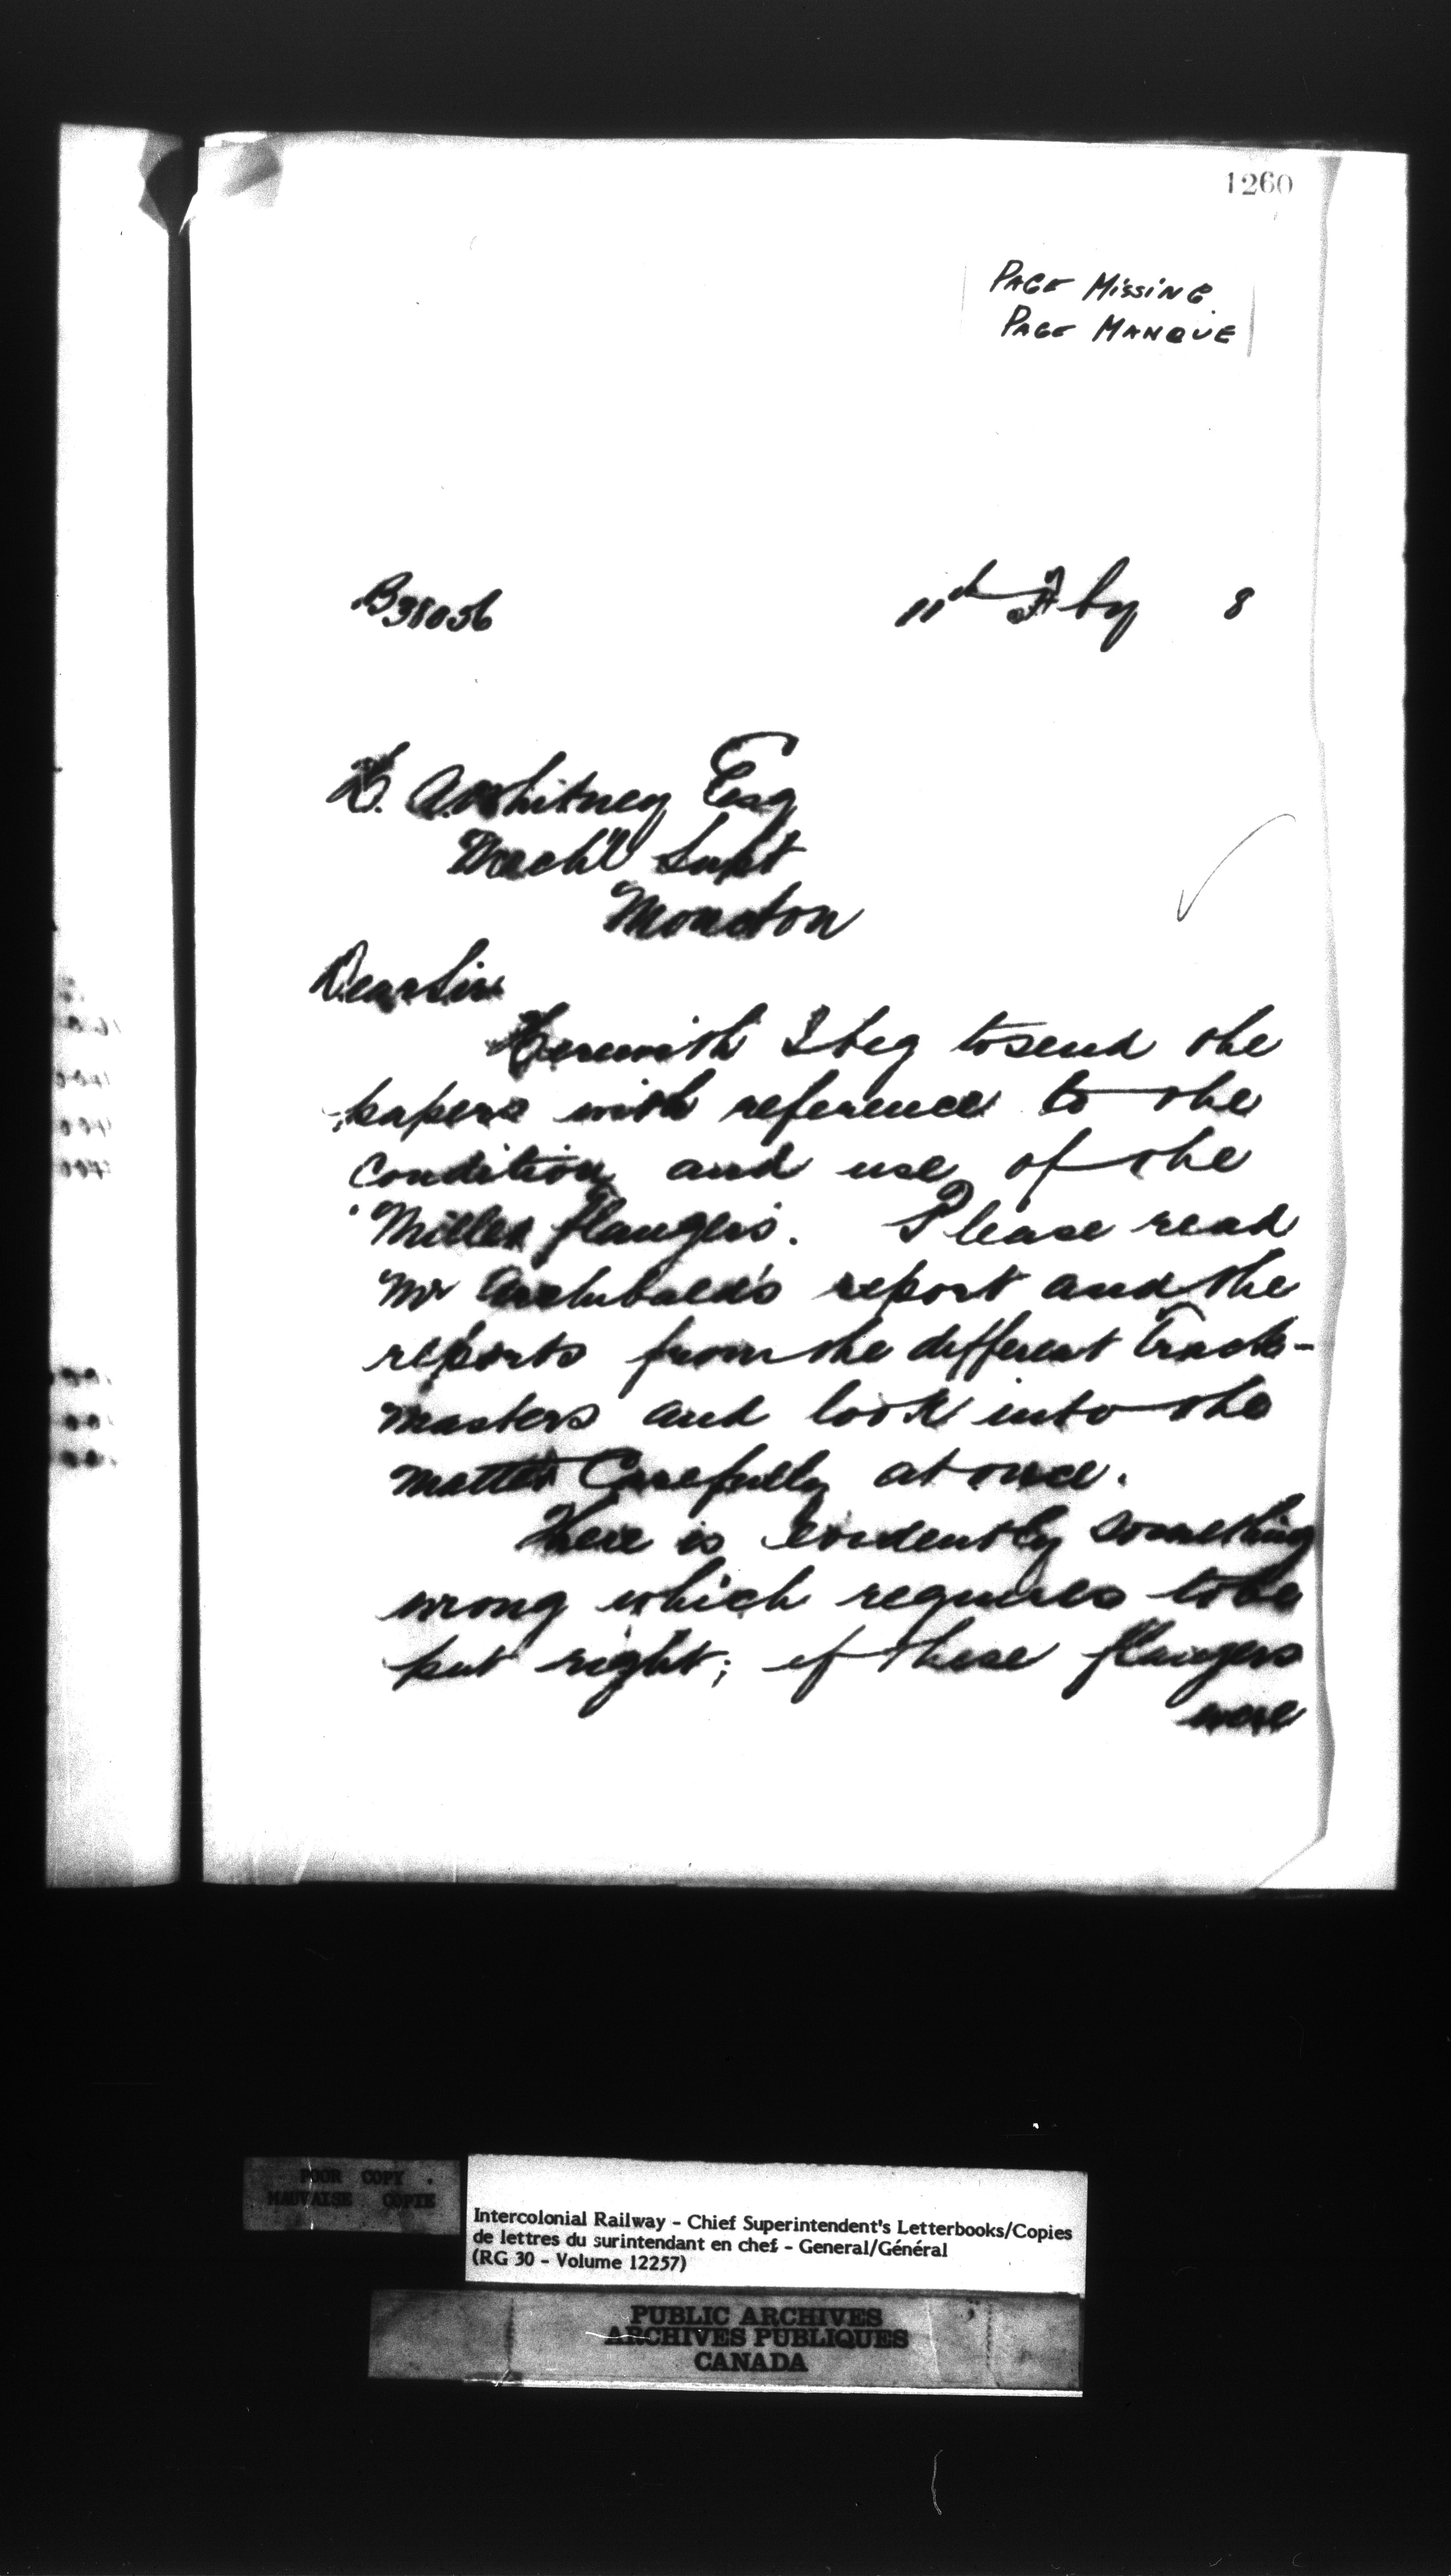 1260
PAGE MISSING
PAGE MANQUE
B38056
11th Feby 8
H. A. Whitney Esq
Mech'l Supt
Moncton
Dear Sir
Herewith I beg to send the
papers with reference to the
condition and use of the
'Miller flangers'. Please read
Mr Archibald's report and the
reports from the different Track-
masters and look into the
matter Carefully at once.
There is evidently something
wrong which requires to be
put right; if these flangers
were
POOR COPY
MAUVAISE COPIE
Intercolonial Railway - Chief Superintendent's Letterbooks/Copies
de lettres du surintendant en chef - General/Général
(RG 30 - Volume 12257)
PUBLIC ARCHIVES
ARCHIVES PUBLIQUES
CANADA